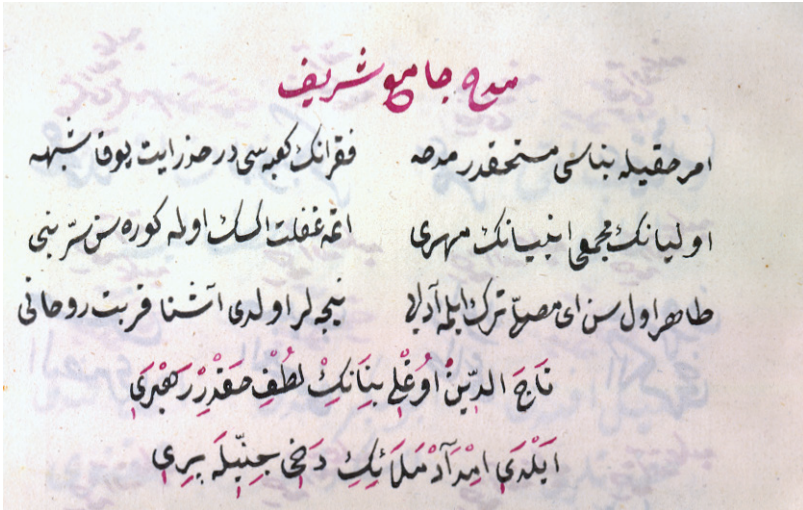 مدح جامع شريف
امر حقيله بناسى مستحقدر مدحه فقرانك كعبه سى در حذر ايت يوقا شبهه
اوليانك مجمعى انبيانك مهرى اتمه غفلت السك اوله كوره سن سر بنى
طاهر اول سن اى مصلى ترك ايله آدابى نيجه لر اولدى آشنا قربت روحانى
تَاجَ الدِّينْ اُوغْلِى بِنَانِكْ لُطْفِ حَقْدِرْ رَهْبَرِى
اَيْلَدِى اِمْدَادْ مَلَائِكِ دَخِى جِنِّيلَه بِرِى